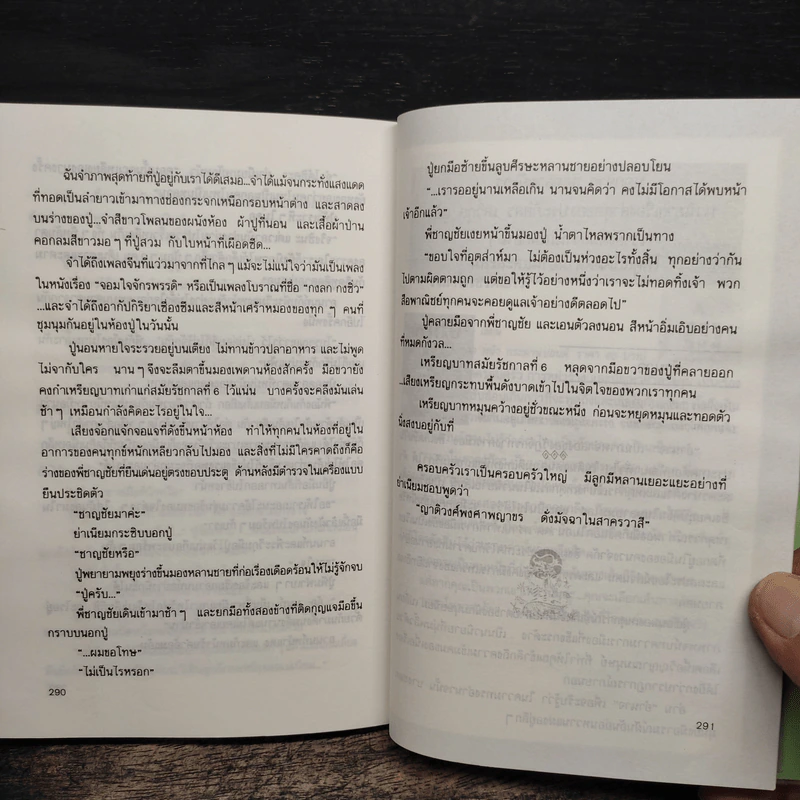 ฉันจำภาพสุดท้ายที่ปู่อยู่กับเราได้ดีเสมอ...จำได้แม้จนกระทั่งแสงแดด
ที่ทอดเป็นลำยาวเข้ามาทางช่องกระจกเหนือกรอบหน้าต่าง และสาดลง
บนร่างของปู่...จำสีขาวโพลนของผนังห้อง ผ้าปูที่นอน และเสื้อผ้าป่าน
คอกลมสีขาวมอๆ ที่ปู่สวม กับใบหน้าที่เผือดซีด...
จำได้ถึงเพลงจีนที่แว่วมาจากที่ไกลๆ แม้จะไม่แน่ใจว่ามันเป็นเพลง
ในหนังเรื่อง "จอมใจจักรพรรดิ" หรือเป็นเพลงโบราณที่ชื่อ "กงลก กงชิ่ว"
...และจำได้ถึงอากัปกิริยาเซื่องซึมและสีหน้าเศร้าหมองของทุกๆ คนที่
ชุมนุมกันอยู่ในห้องปู่ในวันนั้น
ปู่นอนหายใจระรวยอยู่บนเตียง ไม่ทานข้าวปลาอาหาร และไม่พูด
ไม่จากับใคร นานๆ จึงจะลืมตาขึ้นมองเพดานห้องสักครั้ง มือขวายัง
คงกำเหรียญบาทเก่าแก่สมัยรัชกาลที่ 6 ไว้แน่น บางครั้งจะคลึงมันเล่น
ช้าๆ เหมือนกำลังคิดอะไรอยู่ในใจ...
เสียงจ้อกแจ้กจอแจที่ดังขึ้นหน้าห้อง ทำให้ทุกคนในห้องที่อยู่ใน
อาการของคนทุกข์หนักเหลียวกลับไปมอง และสิ่งที่ไม่มีใครคาดถึงก็คือ
ร่างของพี่ชาญชัยที่ยืนเด่นอยู่ตรงขอบประตู ด้านหลังมีตำรวจในเครื่องแบบ
ยืนประชิดตัว
"ชาญชัยมาค่ะ"
ย่าเนียมกระซิบบอกปู่
"ชาญชัยหรือ"
ปู่พยายามพยุงร่างขึ้นมองหลานชายที่ก่อเรื่องเดือดร้อนให้ไม่รู้จักจบ
"ปู่ครับ..."
พี่ชาญชัยเดินเข้ามาช้าๆ และยกมือทั้งสองข้างที่ติดกุญแจมือขึ้น
กราบบนอกปู่
"...ผมขอโทษ"
"ไม่เป็นไรหรอก"
290
ปู่ยกมือซ้ายขึ้นลูบศีรษะหลานชายอย่างปลอบโยน
"...เรารออยู่นานเหลือเกิน นานจนคิดว่า คงไม่มีโอกาสได้พบหน้า
เจ้าอีกแล้ว"
พี่ชาญชัยเงยหน้าขึ้นมองปู่ น้ำตาไหลพรากเป็นทาง
"ขอบใจที่อุตส่าห์มา ไม่ต้องเป็นห่วงอะไรทั้งสิ้น ทุกอย่างว่ากัน
ไปตามผิดตามถูก แต่ขอให้รู้ไว้อย่างหนึ่งว่าเราจะไม่ทอดทิ้งเจ้า พวก
ลือพาณิชย์ทุกคนจะคอยดูแลเจ้าอย่างดีตลอดไป"
ปู่คลายมือจากพี่ชาญชัย และเอนตัวลงนอน สีหน้าอิ่มเอิบอย่างคน
ที่หมดกังวล...
เหรียญบาทสมัยรัชกาลที่ 6 หลุดจากมือขวาของปู่ที่คลายออก
...เสียงเหรียญกระทบพื้นดังบาดเข้าไปในจิตใจของพวกเราทุกคน
เหรียญบาทหมุนคว้างอยู่ชั่วขณะหนึ่ง ก่อนจะหยุดหมุนและทอดตัว
นิ่งสงบอยู่กับที่
ครอบครัวเราเป็นครอบครัวใหญ่ มีลูกมีหลานเยอะแยะอย่างที่
ย่าเนียมชอบพูดว่า
"ญาติวงศ์พงศาพญาขร ดั่งมัจฉาในสาครวาสี"
291